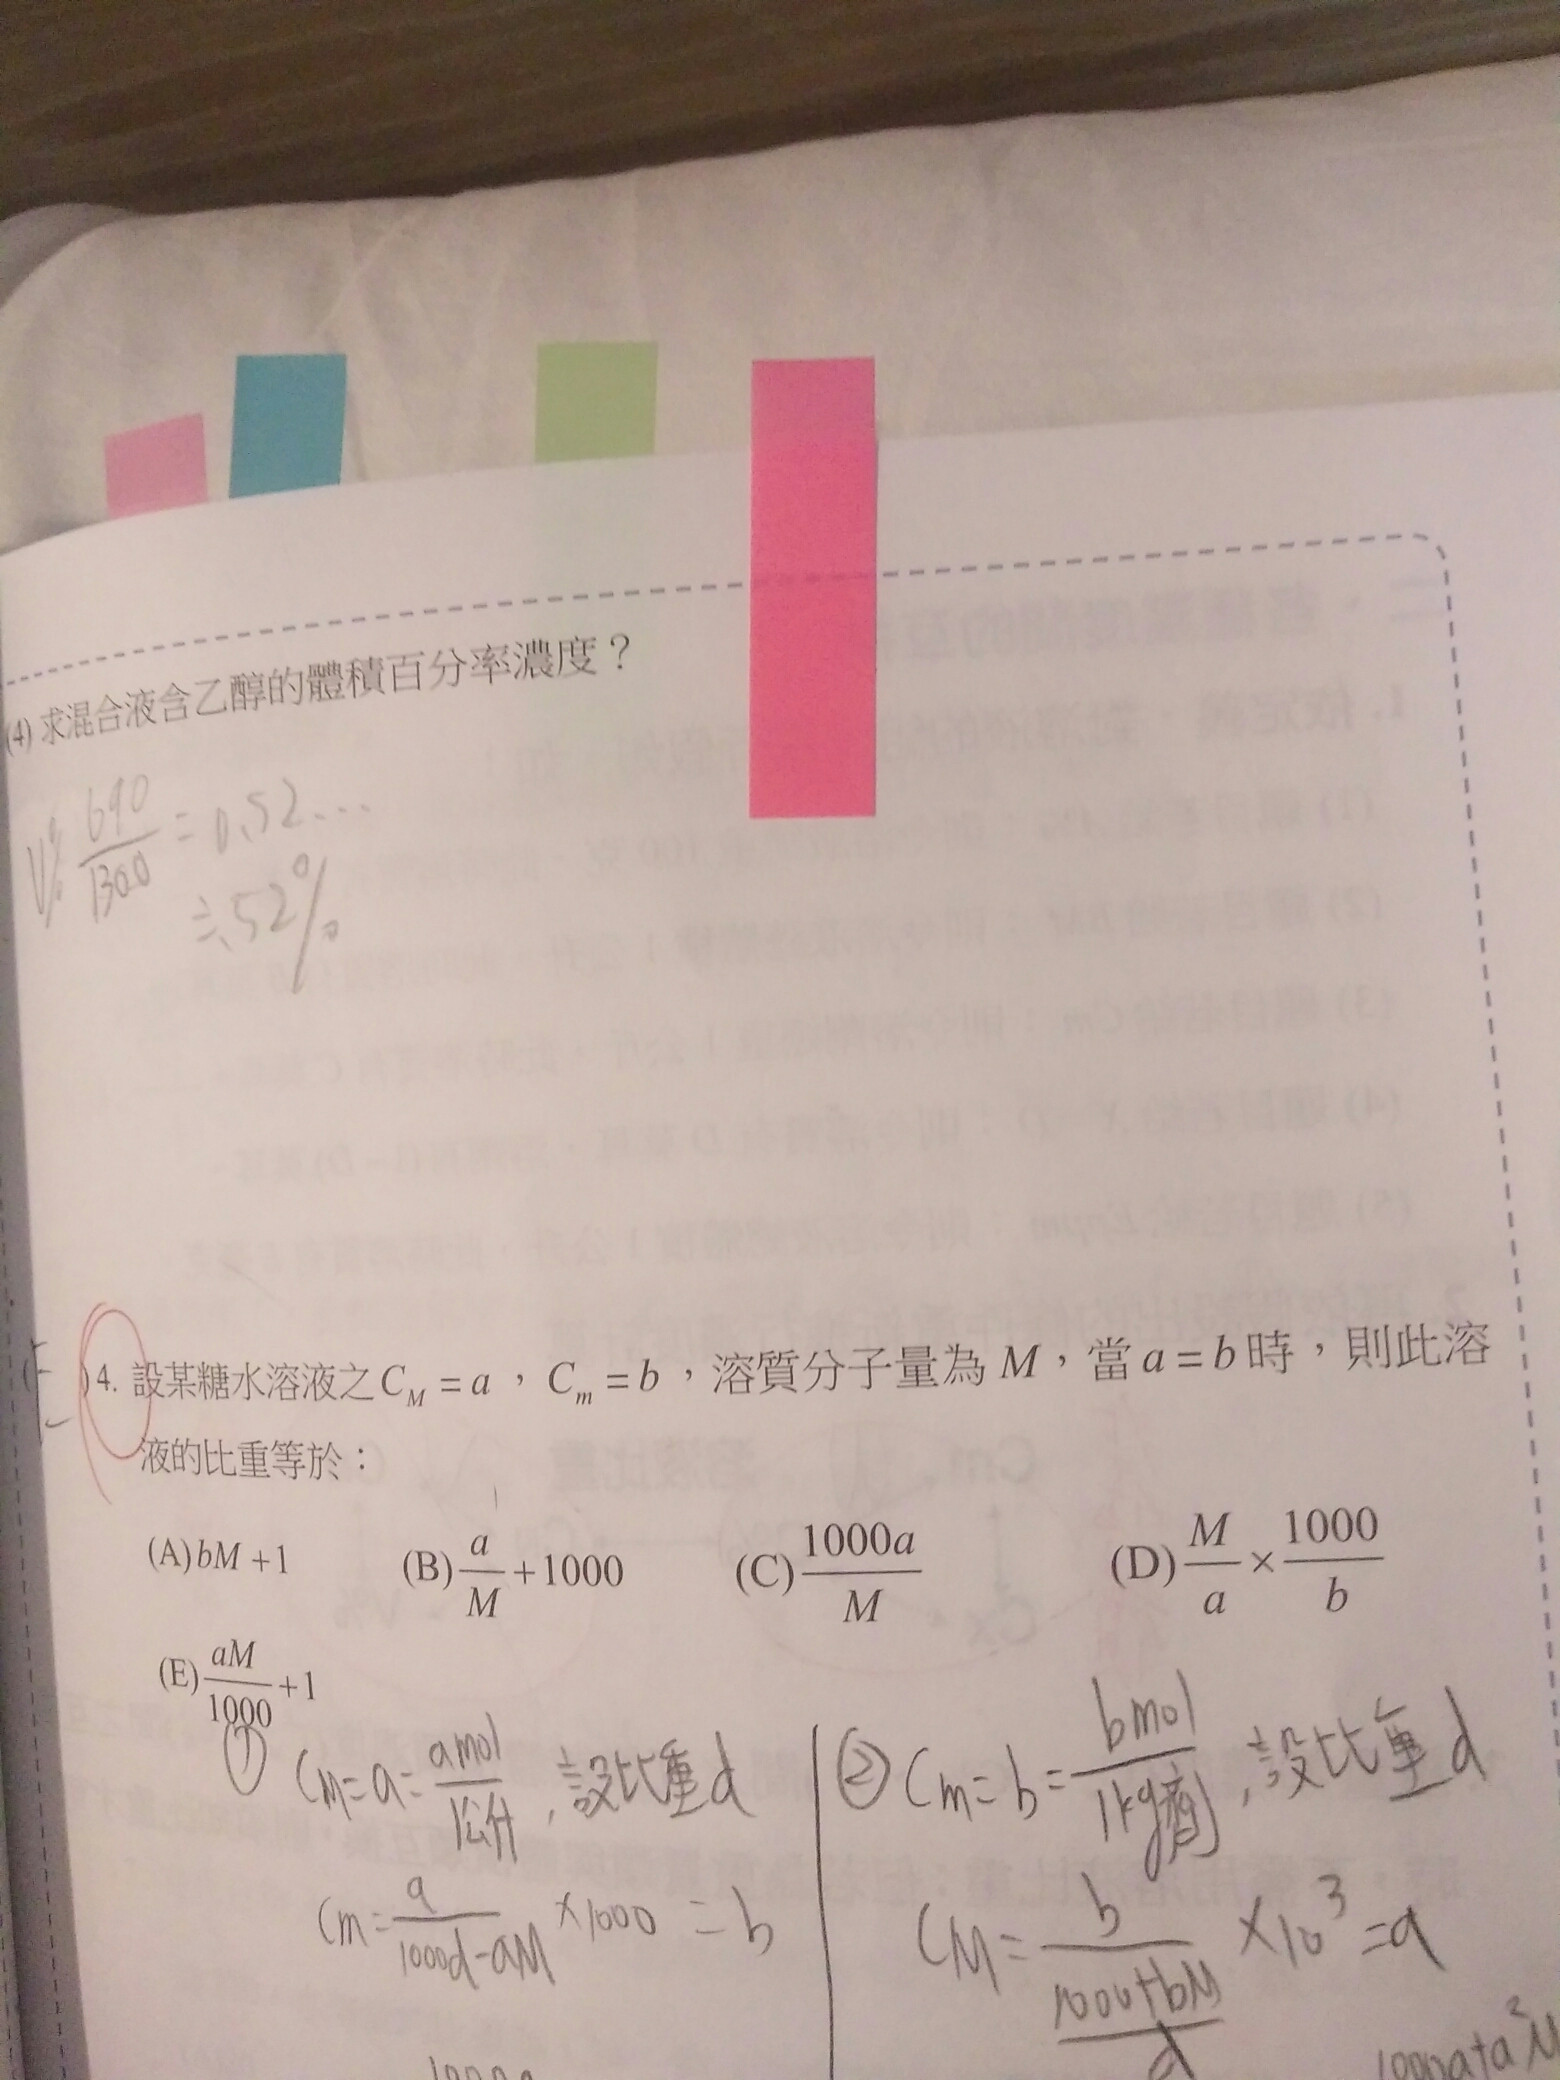 (4) 求混合液含乙醇的體積百分率濃度？
V% 690/1300 = 0.52...
≒52%
4. 設某糖水溶液之 C_M = a ， C_m = b ，溶質分子量為 M ，當 a = b 時，則此溶
液的比重等於：
(A) bM + 1 (B) a/M + 1000 (C) 1000a/M (D) M/a × 1000/b
(E) aM/1000 + 1
① CM = a = amol/1公升 , 設比重d
Cm = a/(1000d-aM) ×1000 = b
② Cm = b = bmol/1kg劑 , 設比重d
CM = b/((1000+bM)/d) ×10³ = a
1000a+a²M